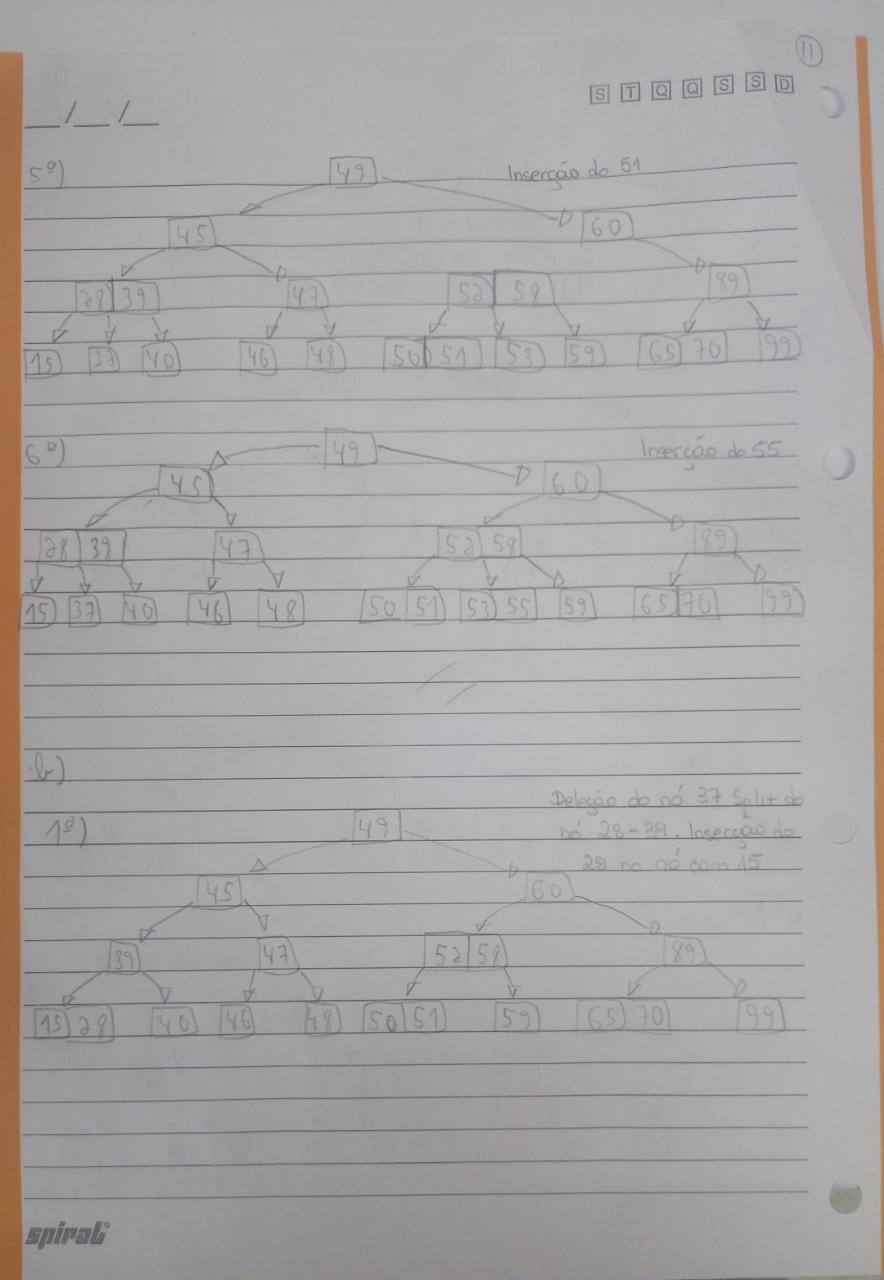 11
S T Q Q S S D
__/__/__
5º) 49 Inserção do 51
45 60
28 39 47 52 58 89
15 37 40 46 48 50 51 53 59 65 70 99
6º) 49 Inserção do 55
45 60
28 39 47 52 58 89
15 37 40 46 48 50 51 53 55 59 65 70 99
b)
Deleção do nó 37 Split do
1º) 49 nó 28-39. Inserção do
28 no nó com 15
45 60
39 47 52 58 89
15 28 40 46 48 50 51 59 65 70 99
spiral